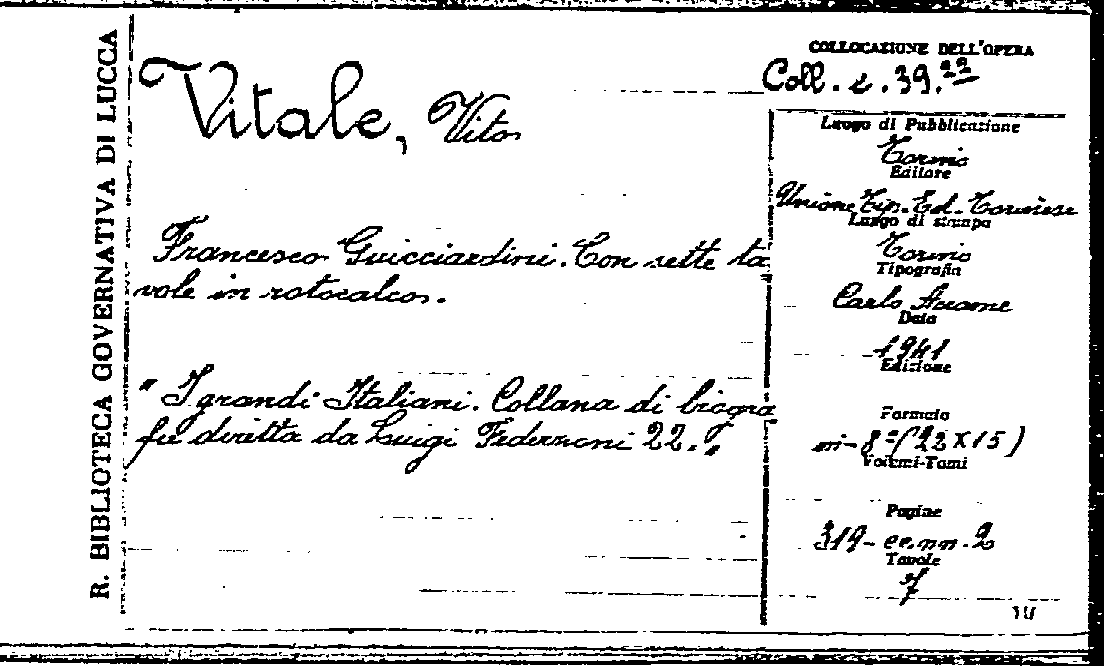 R. BIBLIOTECA GOVERNATIVA DI LUCCA
COLLOCAZIONE DELL'OPERA
Coll. c. 39.22
Vitale, Vito
Francesco Guicciardini. Con sette ta
vole in rotocalco.
" I grandi Italiani. Collana di biogra
fie diretta da Luigi Federzoni 22. "
Luogo di Pubblicazione
Torino
Editore
Unione Tip. Ed. Torinese
Luogo di stampa
Torino
Tipografia
Carlo Accame
Data
1941
Edizione
Formato
in-8º (22 X 15)
Volumi-Tomi
Pagine
319-cc. nn. 2
Tavole
7
10